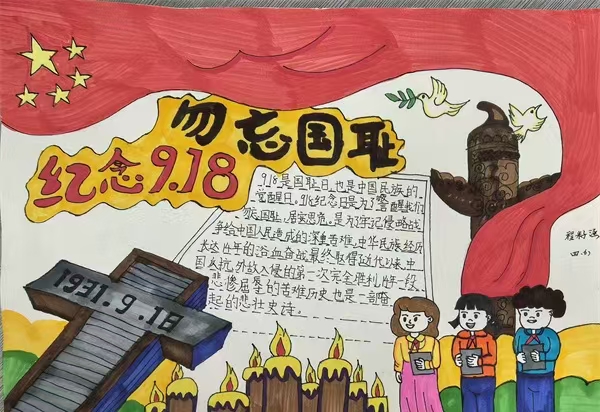 勿忘国耻
纪念9.18
9.18是国耻日,也是中国民族的
觉醒日。9.18纪念日是为了警醒我们
勿忘国耻,居安思危。是为牢记侵略战
争给中国人民造成的深重苦难,中华民族经历
长达14年的浴血奋战最终取得近代以来,中
国反抗外敌入侵的第一次完全胜利,一段
悲惨屈辱的苦难历史也是一部奋
起的悲壮史诗。
1931.9.18